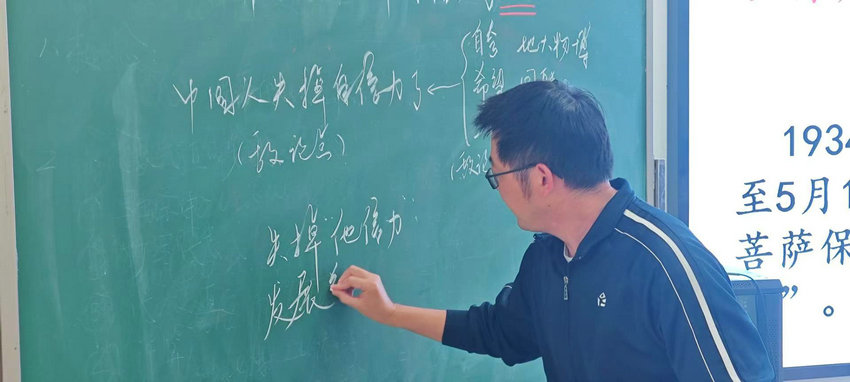 自夸 地大物博
中国人失掉自信力了
希望 国联
(敌论点)
(敌论
失掉"他信力"
发展
1934
至5月1
菩萨保
”。